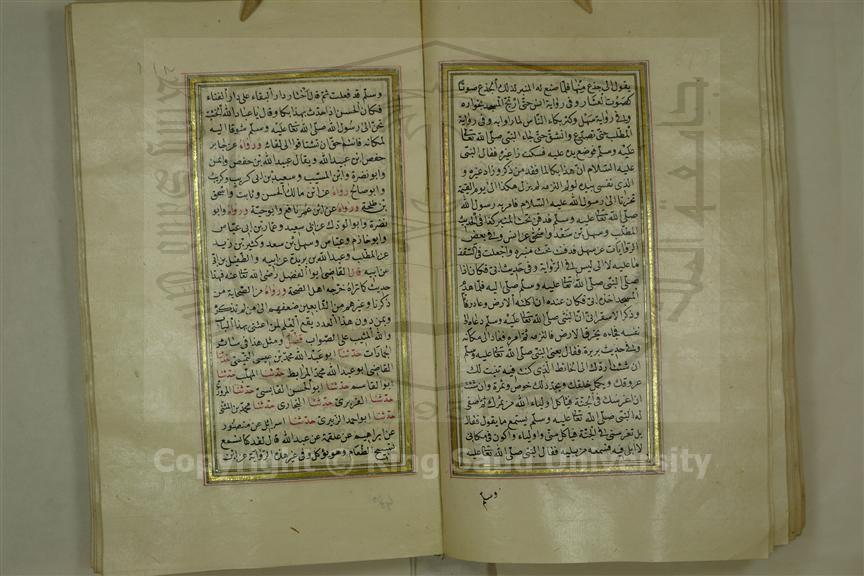 يقول الى جذع منها فلما صنع له المنبر سمعنا لذلك الجذع صوتا
كصوت العشار وفي رواية انس حتى ارتج المسجد بخواره
وفي رواية سهل وكثر بكاء الناس لما راوا به وفي رواية
المطلب حتى تصدع وانشق حتى جاء النبي صلى الله تعالى
عليه وسلم فوضع يده عليه فسكت زاد غيره فقال النبي
عليه السلام ان هذا بكا لما فقد من ذكر وزاد غيره و
الذي نفسي بيده لو لم التزمه لم يزل هكذا الى يوم القيمة
تحزنا على رسول الله عليه السلام فامر به رسول الله
صلى الله تعالى عليه وسلم فدفن تحت المنبر كذا في حديث
المطلب وسهل بن سعد واسحق عن انس وفي بعض
الروايات عن سهل فدفنت تحت منبره او جعلت في السقف
وفي حديث ابي فكان اذا
صلى النبي صلى الله تعالى عليه وسلم صلى اليه فلما هدم
المسجد اخذه ابي فكان عنده الى ان اكلته الارض وعاد رفاتا
وذكر الاسفرايني ان النبي صلى الله تعالى عليه وسلم دعاه الى
نفسه فجاءه يخرق الارض فالتزمه ثم امره فعاد الى مكانه
وفي حديث بريدة فقال يعني النبي صلى الله تعالى عليه وسلم
ان شئت اردك الى الحائط الذي كنت فيه تنبت لك
عروقك ويكمل خلقك ويجدد لك خوص وثمرة وان شئت
اغرسك في الجنة فياكل اولياء الله من ثمرك ثم اصغى
له النبي صلى الله تعالى عليه وسلم يستمع ما يقول فقال
بل تغرسني في الجنة فياكل مني اولياء الله واكون في مكان
لا ابلى فيه فسمعه من يليه فقال النبي صلى الله تعالى عليه
وسلم
وسلم قد فعلت ثم قال اختار دار البقاء على دار الفناء
فكان الحسن اذا حدث بهذا بكا وقال يا عباد الله الخشبة
تحن الى رسول الله صلى الله تعالى عليه وسلم شوقا اليه
لمكانه فانتم احق ان تشتاقوا الى لقائه ورواه عن جابر
حفص بن عبيد الله ويقال عبيد الله بن حفص وايمن
وابو نضرة وابن المسيب وسعيد بن ابي كريب وكريب
وابو صالح رواه عن انس بن مالك الحسن وثابت واسحق
بن طلحة ورواه عن ابن عمر نافع وابو حية ورواه ابو
نضرة وابو الوداك عن ابي سعيد وعمار بن ابي عمار عن ابن عباس
وابو حازم وعباس بن سهل عن سهل بن سعد وكثير بن زيد
عن المطلب وعبد الله بن بريدة عن ابيه والطفيل بن ابي
عن ابيه قال القاضي ابو الفضل رضي الله تعالى عنه فهذا
حديث كما تراه خرجه اهل الصحة ورواه من الصحابة من
ذكرنا وغيرهم من التابعين ضعفهم الى من لم نذكره
وبمن دون هذا العدد يقع العلم لمن اعتنى بهذا الباب
والله المثبت على الصواب فصل ومثل هذا في سائر
الجمادات حدثنا ابو عبد الله محمد بن عيسى التميمي حدثنا
القاضي ابو عبد الله محمد بن المرابط حدثنا المهلب حدثنا
ابو القاسم حدثنا ابو الحسن القابسي حدثنا المروزي
حدثنا الفربري حدثنا البخاري حدثنا محمد بن المثنى
حدثنا ابو احمد الزبيري حدثنا اسرائيل عن منصور
عن ابراهيم عن علقمة عن عبد الله قال لقد كنا نسمع
تسبيح الطعام وهو يؤكل وفي غير هذه الرواية عن ابن
Copyright © King Saud University